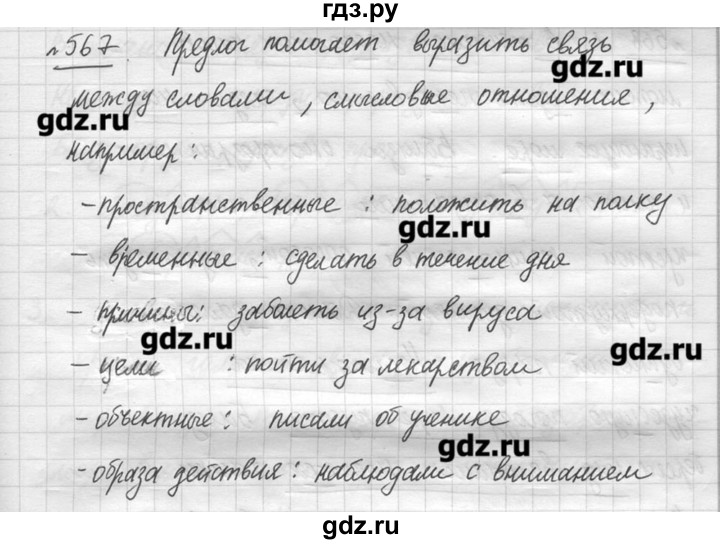 гдз.ру
№567. Предлог помогает выразить связь
gdz.ru
между словами, смысловые отношения,
gdz.ru
например:
- пространственные : положить на полку
gdz.ru
- временные : сделать в течение дня
- причины: заболеть из-за вируса
gdz.ru
gdz.ru
- цели : пойти за лекарством
- объектные : писали об ученике
gdz.ru
- образа действия : наблюдали с вниманием
gdz.ru